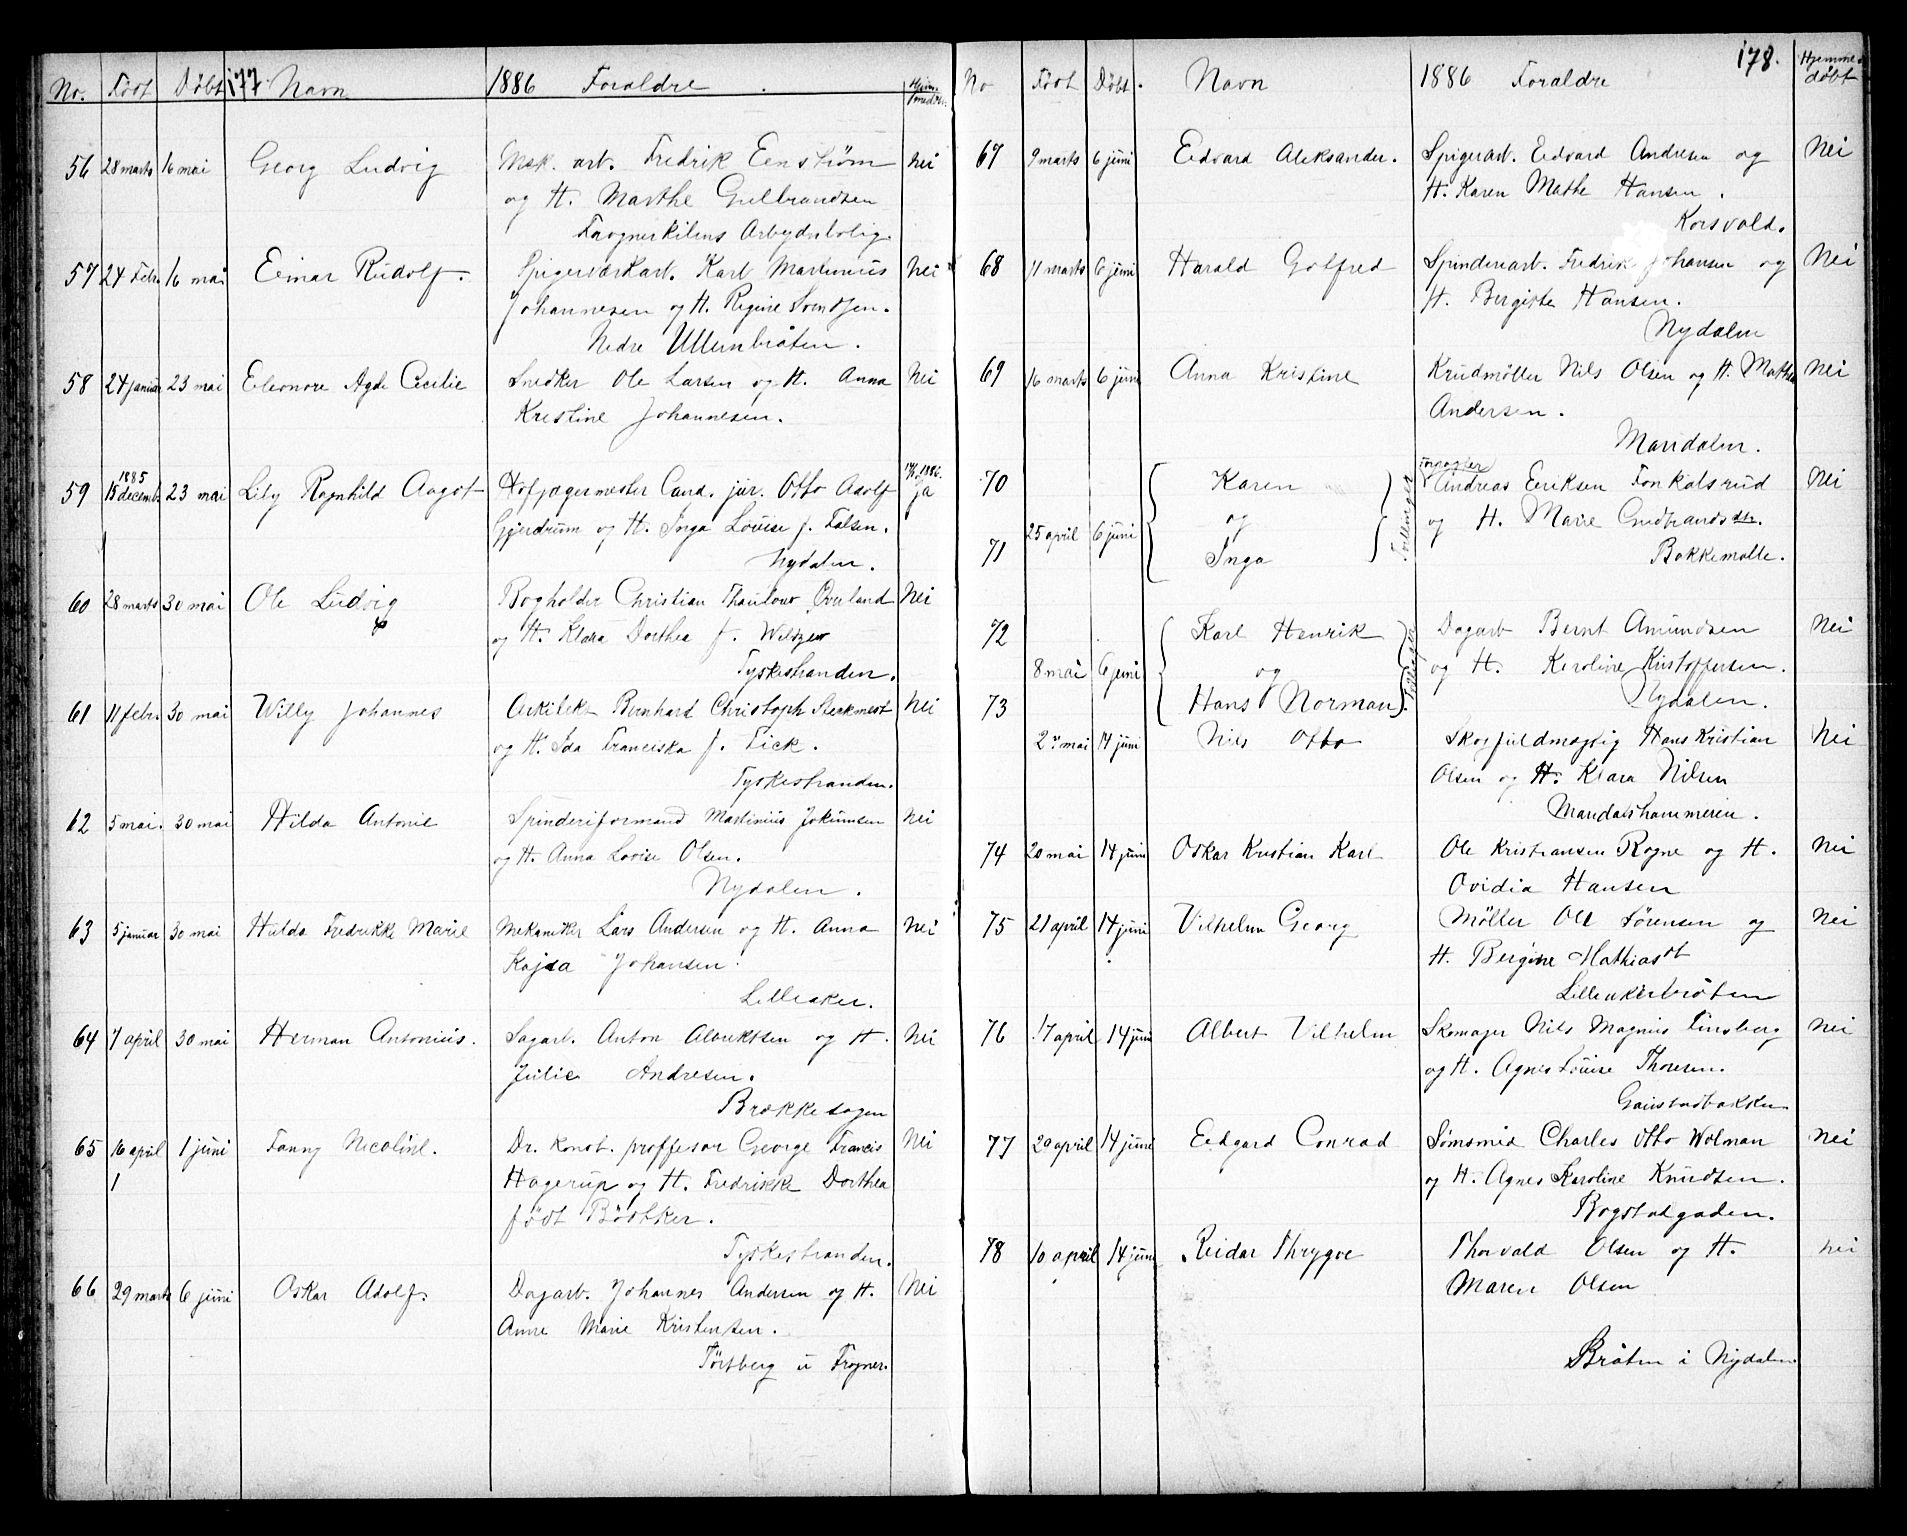 No. Født Døbt 177 Navn 1886 Foraldre
56 28 marts 16 mai Georg Ludvig Mek. arb. Fredrik Eenstrøm Nei
og H. Marthe Gulbrandsen
Frognerkilens Arbejderbolig
57 24 Febr. 16 mai Einar Rudolf. Spigerværkarb. Karl Martinius Nei
Johannesen og H. Regine Svendsen.
Nedre Ullernbråten.
58 24 januar 23 mai Eleonore Agde Cecilie Snedker Ole Larsen og H. Anna Nei
Kristine Johannesen.
1885
59 15 decemb. 23 mai Lily Ragnhild Aagot Hofjægermester Cand. jur. Otto Adolf ja
1886.
Gjerdrum og H. Inga Louise f. Falsen.
Nydalen.
60 28 marts 30 mai Ole Ludvig Bogholder Christian Thaulow Overland Nei
og H. Klara Dorthea f.
Tyskestranden.
61 11 febr. 30 mai Willy Johannes Arkitekt Bernhard Christoph Nei
og H. Ida Franciska f. Fick.
Tyskestranden.
62 5 mai. 30 mai Hilda Antonie Spinderiformand Martinius Jokumsen Nei
og H. Anna Lovise Olsen.
Nydalen.
63 5 januar 30 mai Hulda Fredrikke Marie Mekaniker Lars Andersen og H. Anna Nei
Kajsa Johansen.
Lilleaker.
64 7 april 30 mai Herman Antonius. Sagarb. Anton Albriktsen og H. Nei
Julie Andresen.
Brækkesagen
65 16 april 1 juni Fanny Nicoline. Dr. konst. proffesor George Francis Nei
Hagerup og H. Fredrikke Dorthea
født Bødtker.
Tyskestranden.
66 29 marts 6 juni Oskar Adolf. Dagarb. Johannes Andersen og H. Nei
Anne Marie Kristensen.
Tørtberg u Frogner.
No Født Døbt. Navn 1886 Foraldre 178. Hjemme døbt
67 9 marts 6 juni Edvard Aleksander. Spigerarb. Edvard Andresen og Nei
H. Karen Mathe Hansen.
Korsvold.
68 11 marts 6 juni Harald Gotfred Spinderiarb. Fredrik Johansen og Nei
H. Bergitte Hansen.
Nydalen
69 16 marts 6 juni Anna Kristine Krudmøller Nils Olsen og H. Mathea Nei
Andersen.
Maridalen.
Forpagter
70 Karen Andreas Eriksen Fonkalsrud Nei
25 april 6 juni og Tvillinger og H. Marie Gudbrandsdtr.
71 Inga Bakkemølle.
72 Karl Henrik Dagarb Bernt Amundsen Nei
8 mai 6 juni og Tvillinger og H. Karoline Kristoffersen.
73 Hans Norman Nydalen.
2 mai 14 juni Nils Otto Skogfuldmægtig Hans Kristian Nei
Olsen og H. Klara Nilsen
Maridalshammeren.
74 20 mai 14 juni Oskar Kristian Karl Ole Kristiansen Rogne og H. Nei
Ovidia Hansen
75 21 april 14 juni Vilhelm Georg Møller Ole Sørensen og Nei
H. Bergine Mathiasdt
Lilleakerbråten
76 17 april 14 juni Albert Vilhelm Skomager Nils Magnus Linsberg Nei
og H. Agnes Louise Thoresen.
Gaustadbakken
77 20 april 14 juni Edgard Conrad Sømsmed Charles Otto Wolman Nei
og H. Agnes Karoline Knudsen.
Bogstadgaden.
78 10 april 14 juni Reidar Thrygve Thorvald Olsen og H. Nei
Maren Olsen
Bråten i Nydalen